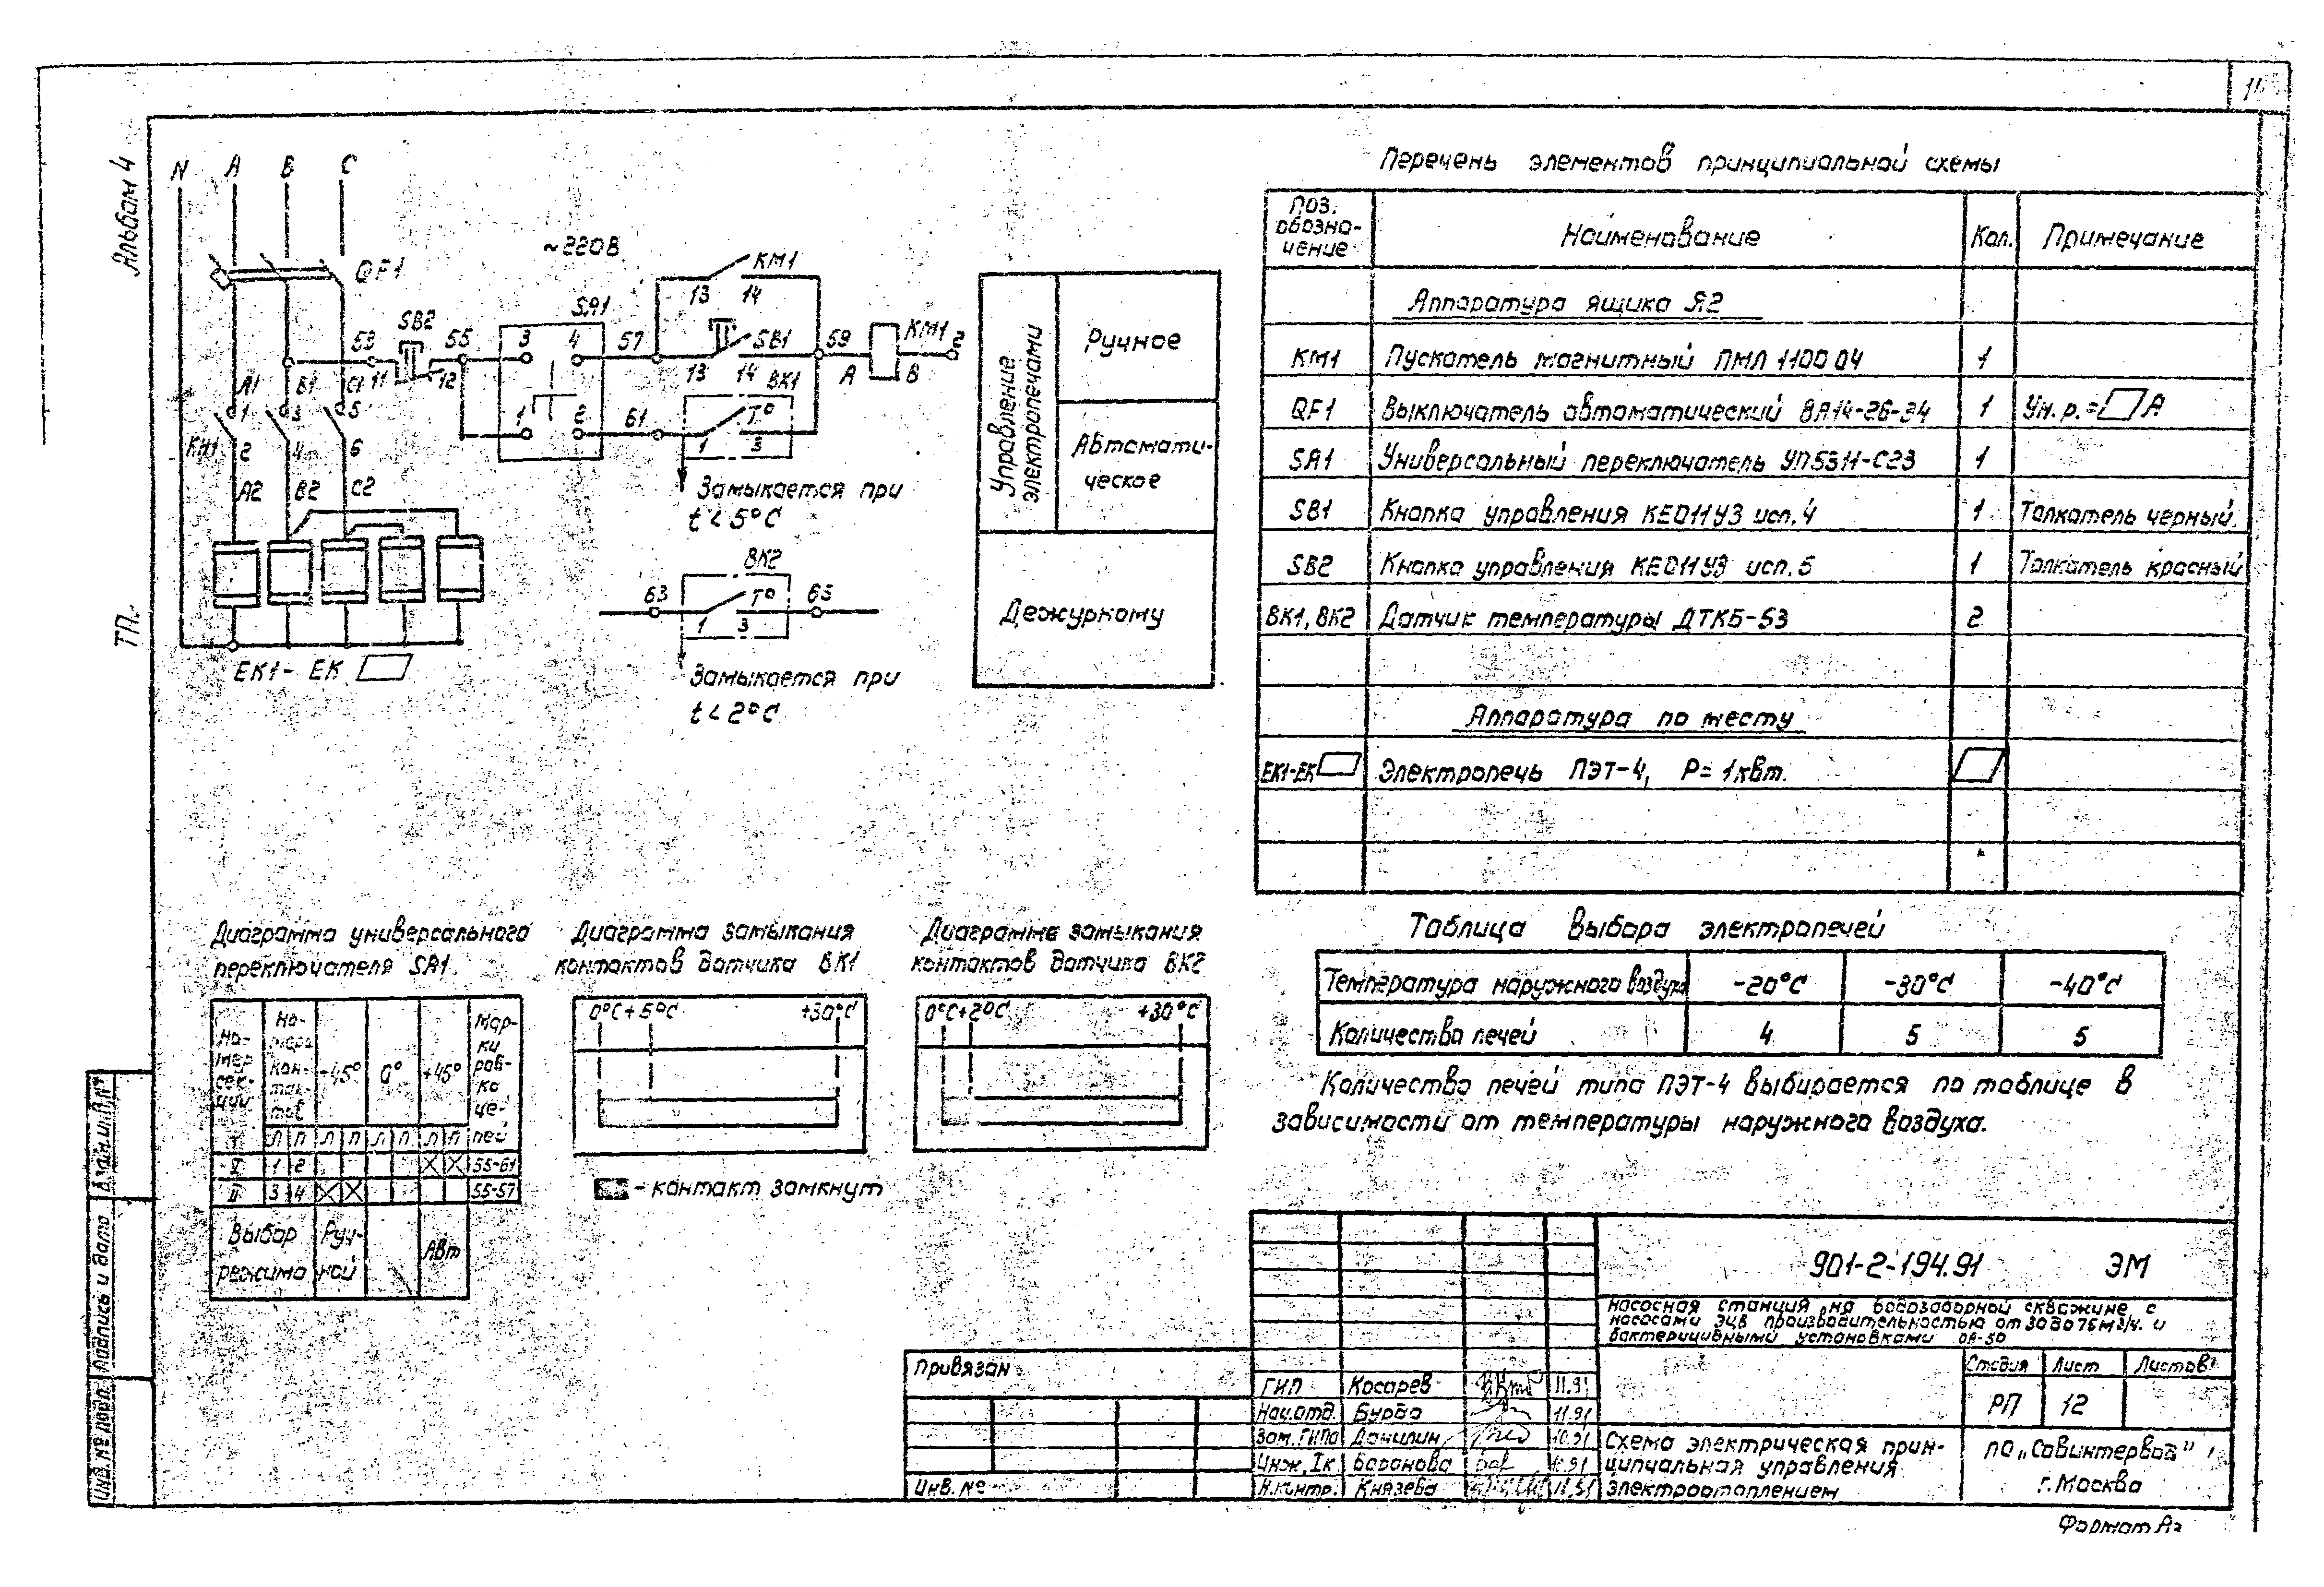 Альбом 4
ТП.
N A B C
QF1
~220В
SB2
SA1
KM1
13 14
53 55 3 4 57 SB1 59 KM1 2
11 12 13 14 A B
A1 B1 C1
BK1
1 3 5
KM1 2 4 6
1 2 61 T°
1 3
A2 B2 C2
Замыкается при
t < 5°C
BK2
63 T° 65
1 3
Замыкается при
t < 2°C
EK1- EK
Управление электропечами
Ручное
Автомати-
ческое
Дежурному
Перечень элементов принципиальной схемы
Поз. обозна-чение Наименование Кол. Примечание
Аппаратура ящика Я2
KM1 Пускатель магнитный ПМЛ 1100 04 1
QF1 Выключатель автоматический ВА14-26-34 1 Iн.р.= А
SA1 Универсальный переключатель УП5311-С23 1
SB1 Кнопка управления КЕ011У3 исп.4 1 Толкатель черный.
SB2 Кнопка управления КЕ011У3 исп.5 1 Толкатель красный
BK1, BK2 Датчик температуры ДТКБ-53 2
Аппаратура по месту
EK1-EK Электропечь ПЭТ-4, P= 1квт.
Диаграмма универсального
переключателя SA1.
Но-мер сек-ции Но-мера кон-так-тов -45° 0° +45° Мар-ки ров-ка це-пей
Л П Л П Л П Л П
I 1 2 X X 55-61
II 3 4 X X 55-57
Выбор режима Руч-ной Авт
Диаграмма замыкания
контактов датчика BK1
0°C +5°C +30°C
Диаграмма замыкания
контактов датчика BK2
0°C +2°C +30°C
- контакт замкнут
Таблица выбора электропечей
Температура наружного воздуха -20°C -30°C -40°C
Количество печей 4 5 5
Количество печей типа ПЭТ-4 выбирается по таблице в
зависимости от температуры наружного воздуха.
901-2-194.91 ЭМ
Насосная станция на водозаборной скважине с
насосами ЭЦВ производительностью от 30 до 75 м3/ч. и
бактерицидными установками ОВ-50
Привязан
Инв. №
ГИП Косарев 11.91
Нач.отд. Бурба 11.91
Зам. ГИПа Данилин 10.91
Инж. Iк Баранова 10.91
Н.контр. Князева
Стадия Лист Листов
РП 12
Схема электрическая прин-
ципиальная управления
электроотоплением
ПО „Совинтервод"
г. Москва
Взам.инв.№
Подпись и дата
Инв. № подл.
Формат А3